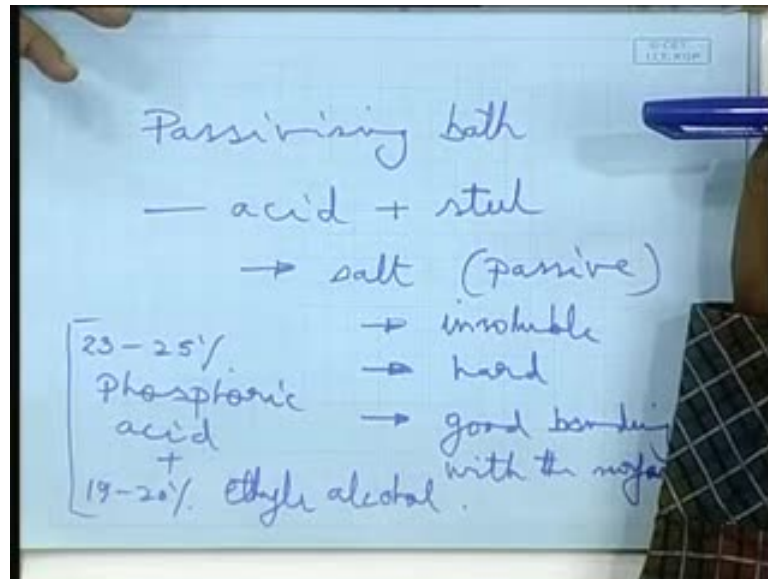 Passivising bath
— acid + steel
→ salt (passive)
→ insoluble
→ hard
→ good bonding
with the
23-25%
Phosphoric
acid
+
19-20% ethyle alcohol.